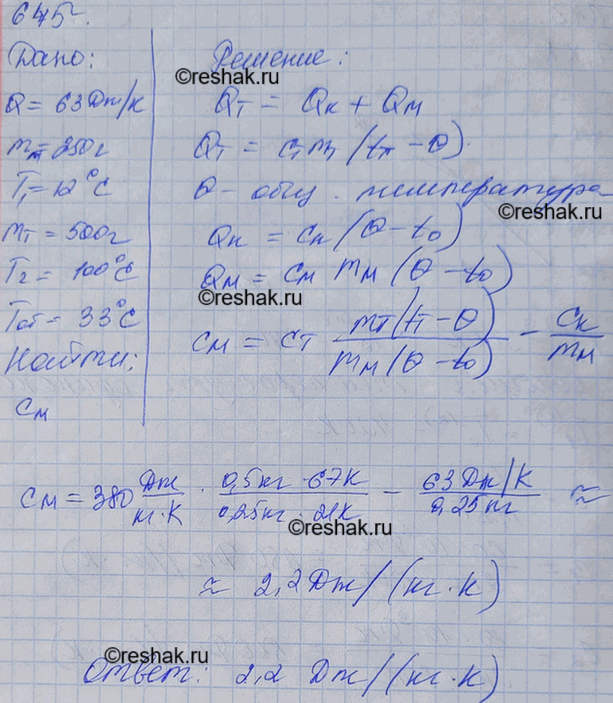 645.
Дано:
Q = 63 Дж/К
mм = 250 г
T₁ = 12 °C
mт = 500 г
T₂ = 100 °C
Tот = 33 °C
Найти:
cм
Решение:
©reshak.ru
Qт = Qк + Qм
Qт = cт mт (tт − θ)
θ – общ. температура
©reshak.ru
Qк = cк (θ − t₀)
Qм = cм mм (θ − t₀)
©reshak.ru
cм = cт mт(tт − θ) / mм(θ − t₀) − cк / mм
cм = 380 Дж/кг·К · 0,5кг · 67К / 0,25кг · 21К − 63 Дж/К / 0,25кг ≈
©reshak.ru
≈ 2,2 Дж/(кг·К)
©reshak.ru
Ответ: 2,2 Дж/(кг·К)